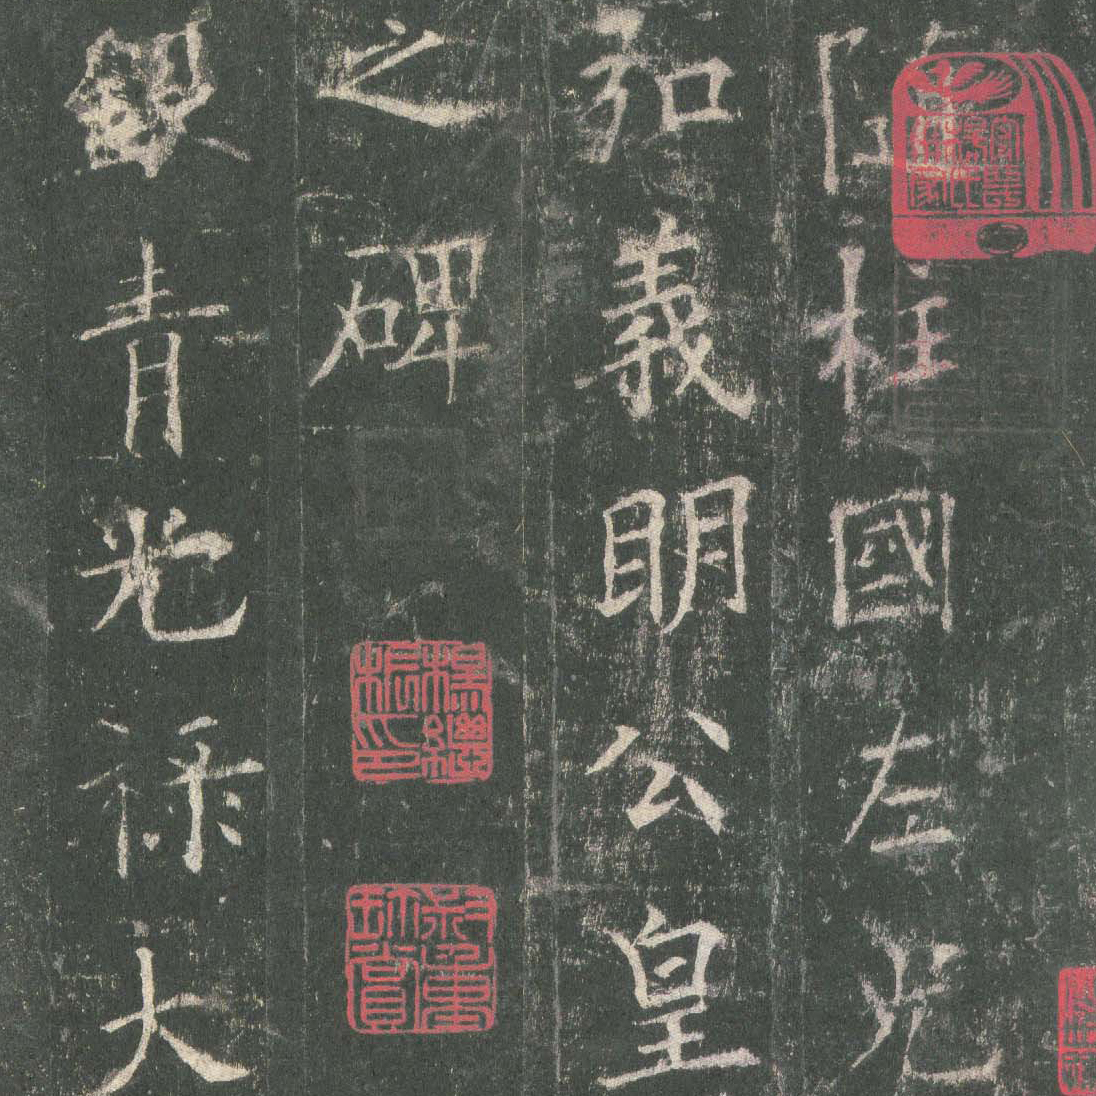 隋柱國左光
弘義明公皇
之碑
楊繼振印
銀青光祿大